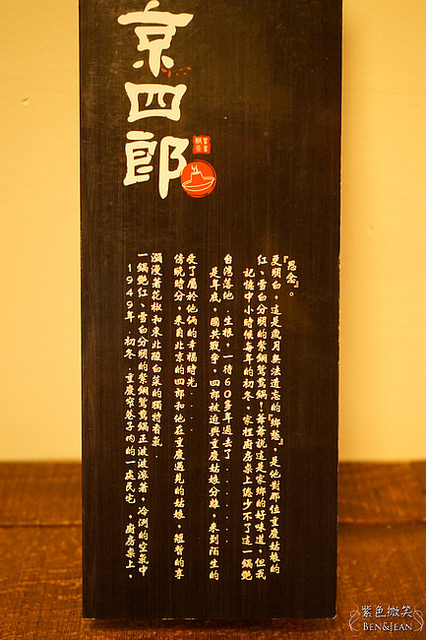 京四郎
1949年.初冬.重慶窄巷子內的一處民宅,廚房桌上,
一鍋艷紅、雪白分明的紫銅鴛鴦鍋正波波滾著,冷冽的空氣中
瀰漫著花椒和東北酸白菜的獨特香氣.
傍晚時分,來自北京的四郎和他在重慶遇見的姑娘,短暫的享
受了屬於他倆的幸福時光.....
是年底,國共戰爭,四郎被迫與重慶姑娘分離,來到陌生的
台灣落地.生根,一待60多年過去了.......
記憶中小時候每年的初冬,家裡廚房桌上總少不了這一鍋艷
紅、雪白分明的紫銅鴛鴦鍋!爺爺說這是家鄉的好味道,但我
更明白,這是歲月無法遺忘的『鄉愁』,是他對那位重慶姑娘的
『思念』。
紫色微笑
BEN&JEAN